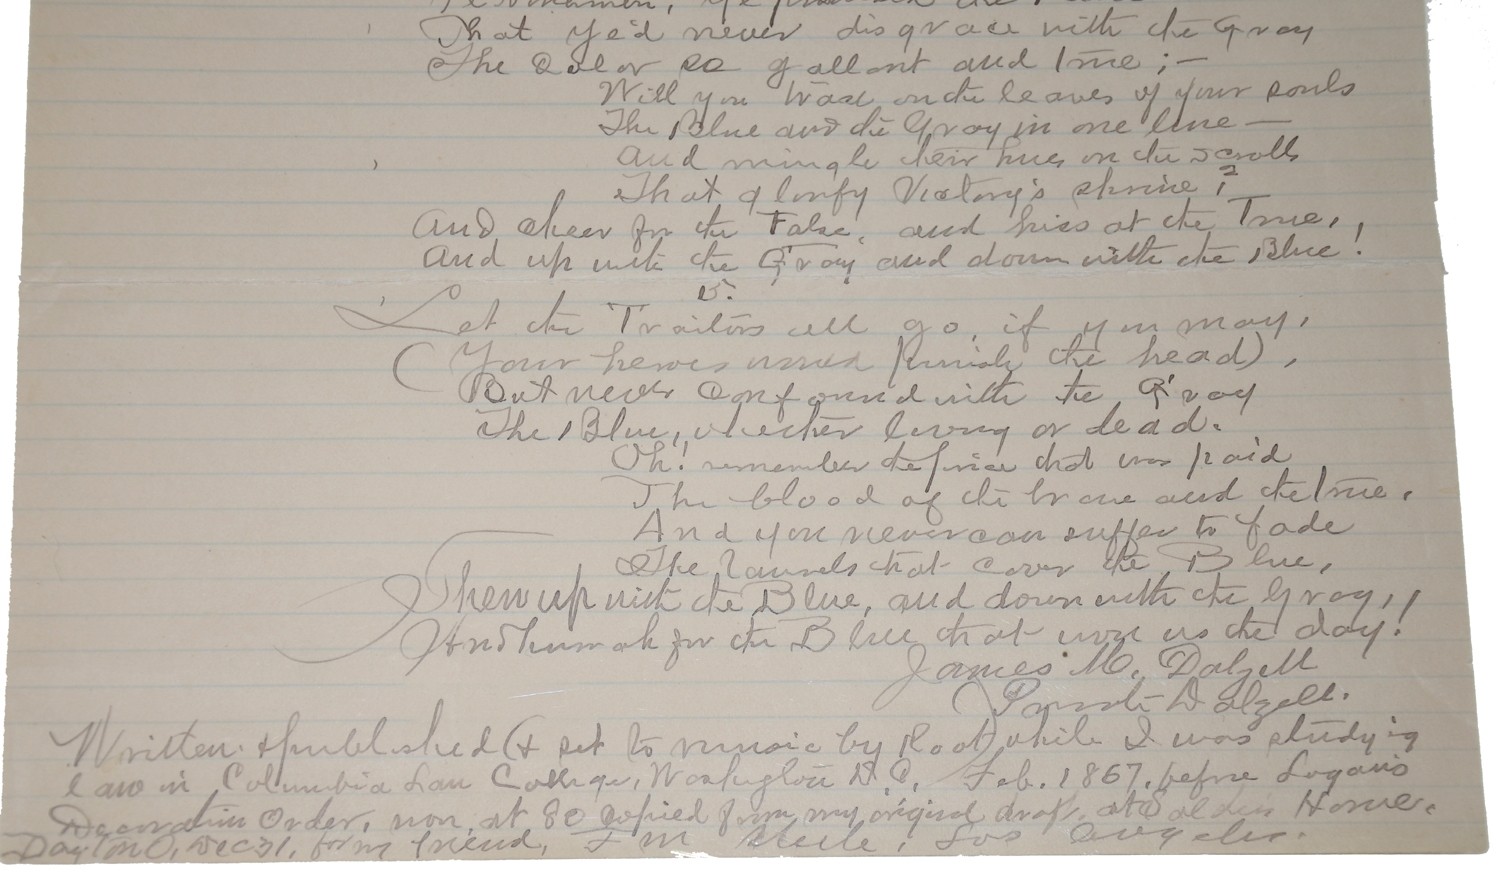 That ye'd never disgrace with the Gray
The Color so gallant and true; —
Will you trace on the leaves of your souls
The Blue and the Gray in one line —
And mingle their hues on the scrolls
That glorify Victory's shrine?
And cheer for the False, and hiss at the True,
And up with the Gray and down with the Blue!
5.
Let the Traitors all go, if you may,
(Your heroes would punish the head),
But never confound with the Gray
The Blue, whether living or dead.
Oh! remember the price that was paid
The blood of the brave and the true,
And you never can suffer to fade
The laurels that cover the Blue,
Then up with the Blue, and down with the Gray,
And hurrah for the Blue that won us the day!
James M. Dalzell
(Private Dalzell.
Written & published (& set to music by Root) while I was studyig
law in Columbia Law College, Washington D.C. Feb. 1867, before Logan's
Decoration Order, now, at 80 copied from my original draft, at Soldiers Home.
Dayton O, Dec 31, for my friend, F M Steele, Los Angeles.